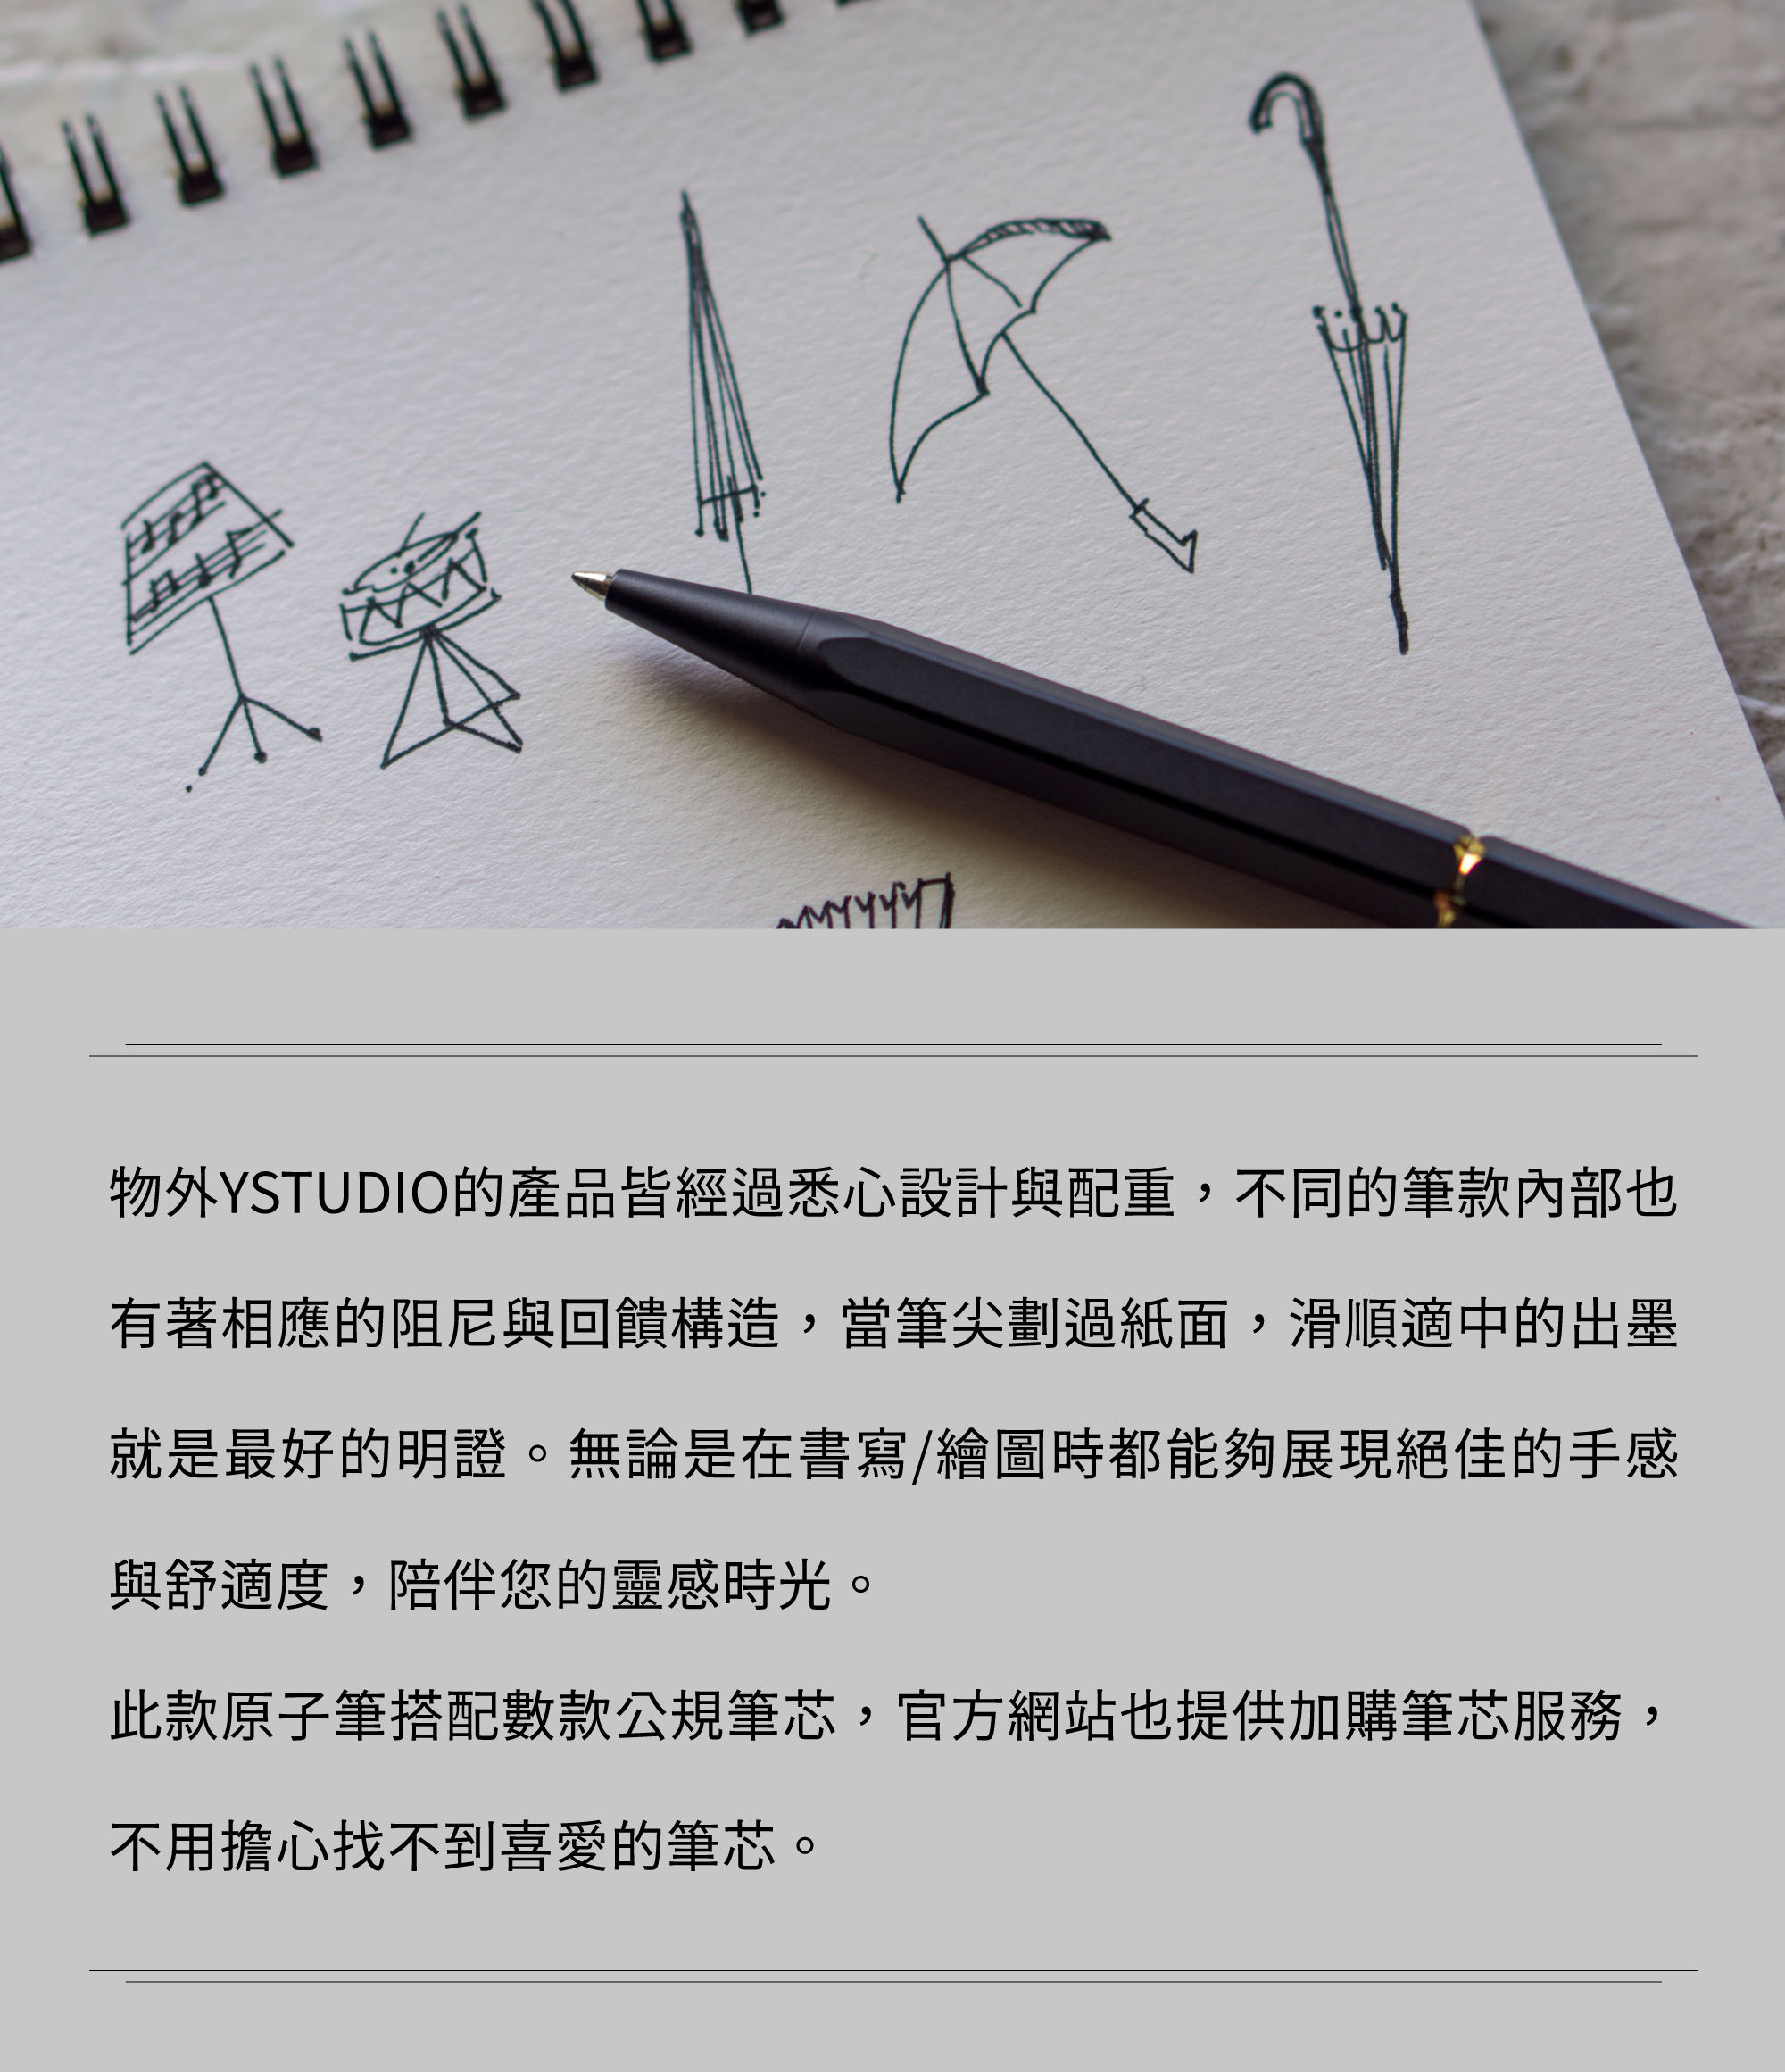 物外YSTUDIO的產品皆經過悉心設計與配重，不同的筆款內部也
有著相應的阻尼與回饋構造，當筆尖劃過紙面，滑順適中的出墨
就是最好的明證。無論是在書寫/繪圖時都能夠展現絕佳的手感
與舒適度，陪伴您的靈感時光。
此款原子筆搭配數款公規筆芯，官方網站也提供加購筆芯服務，
不用擔心找不到喜愛的筆芯。